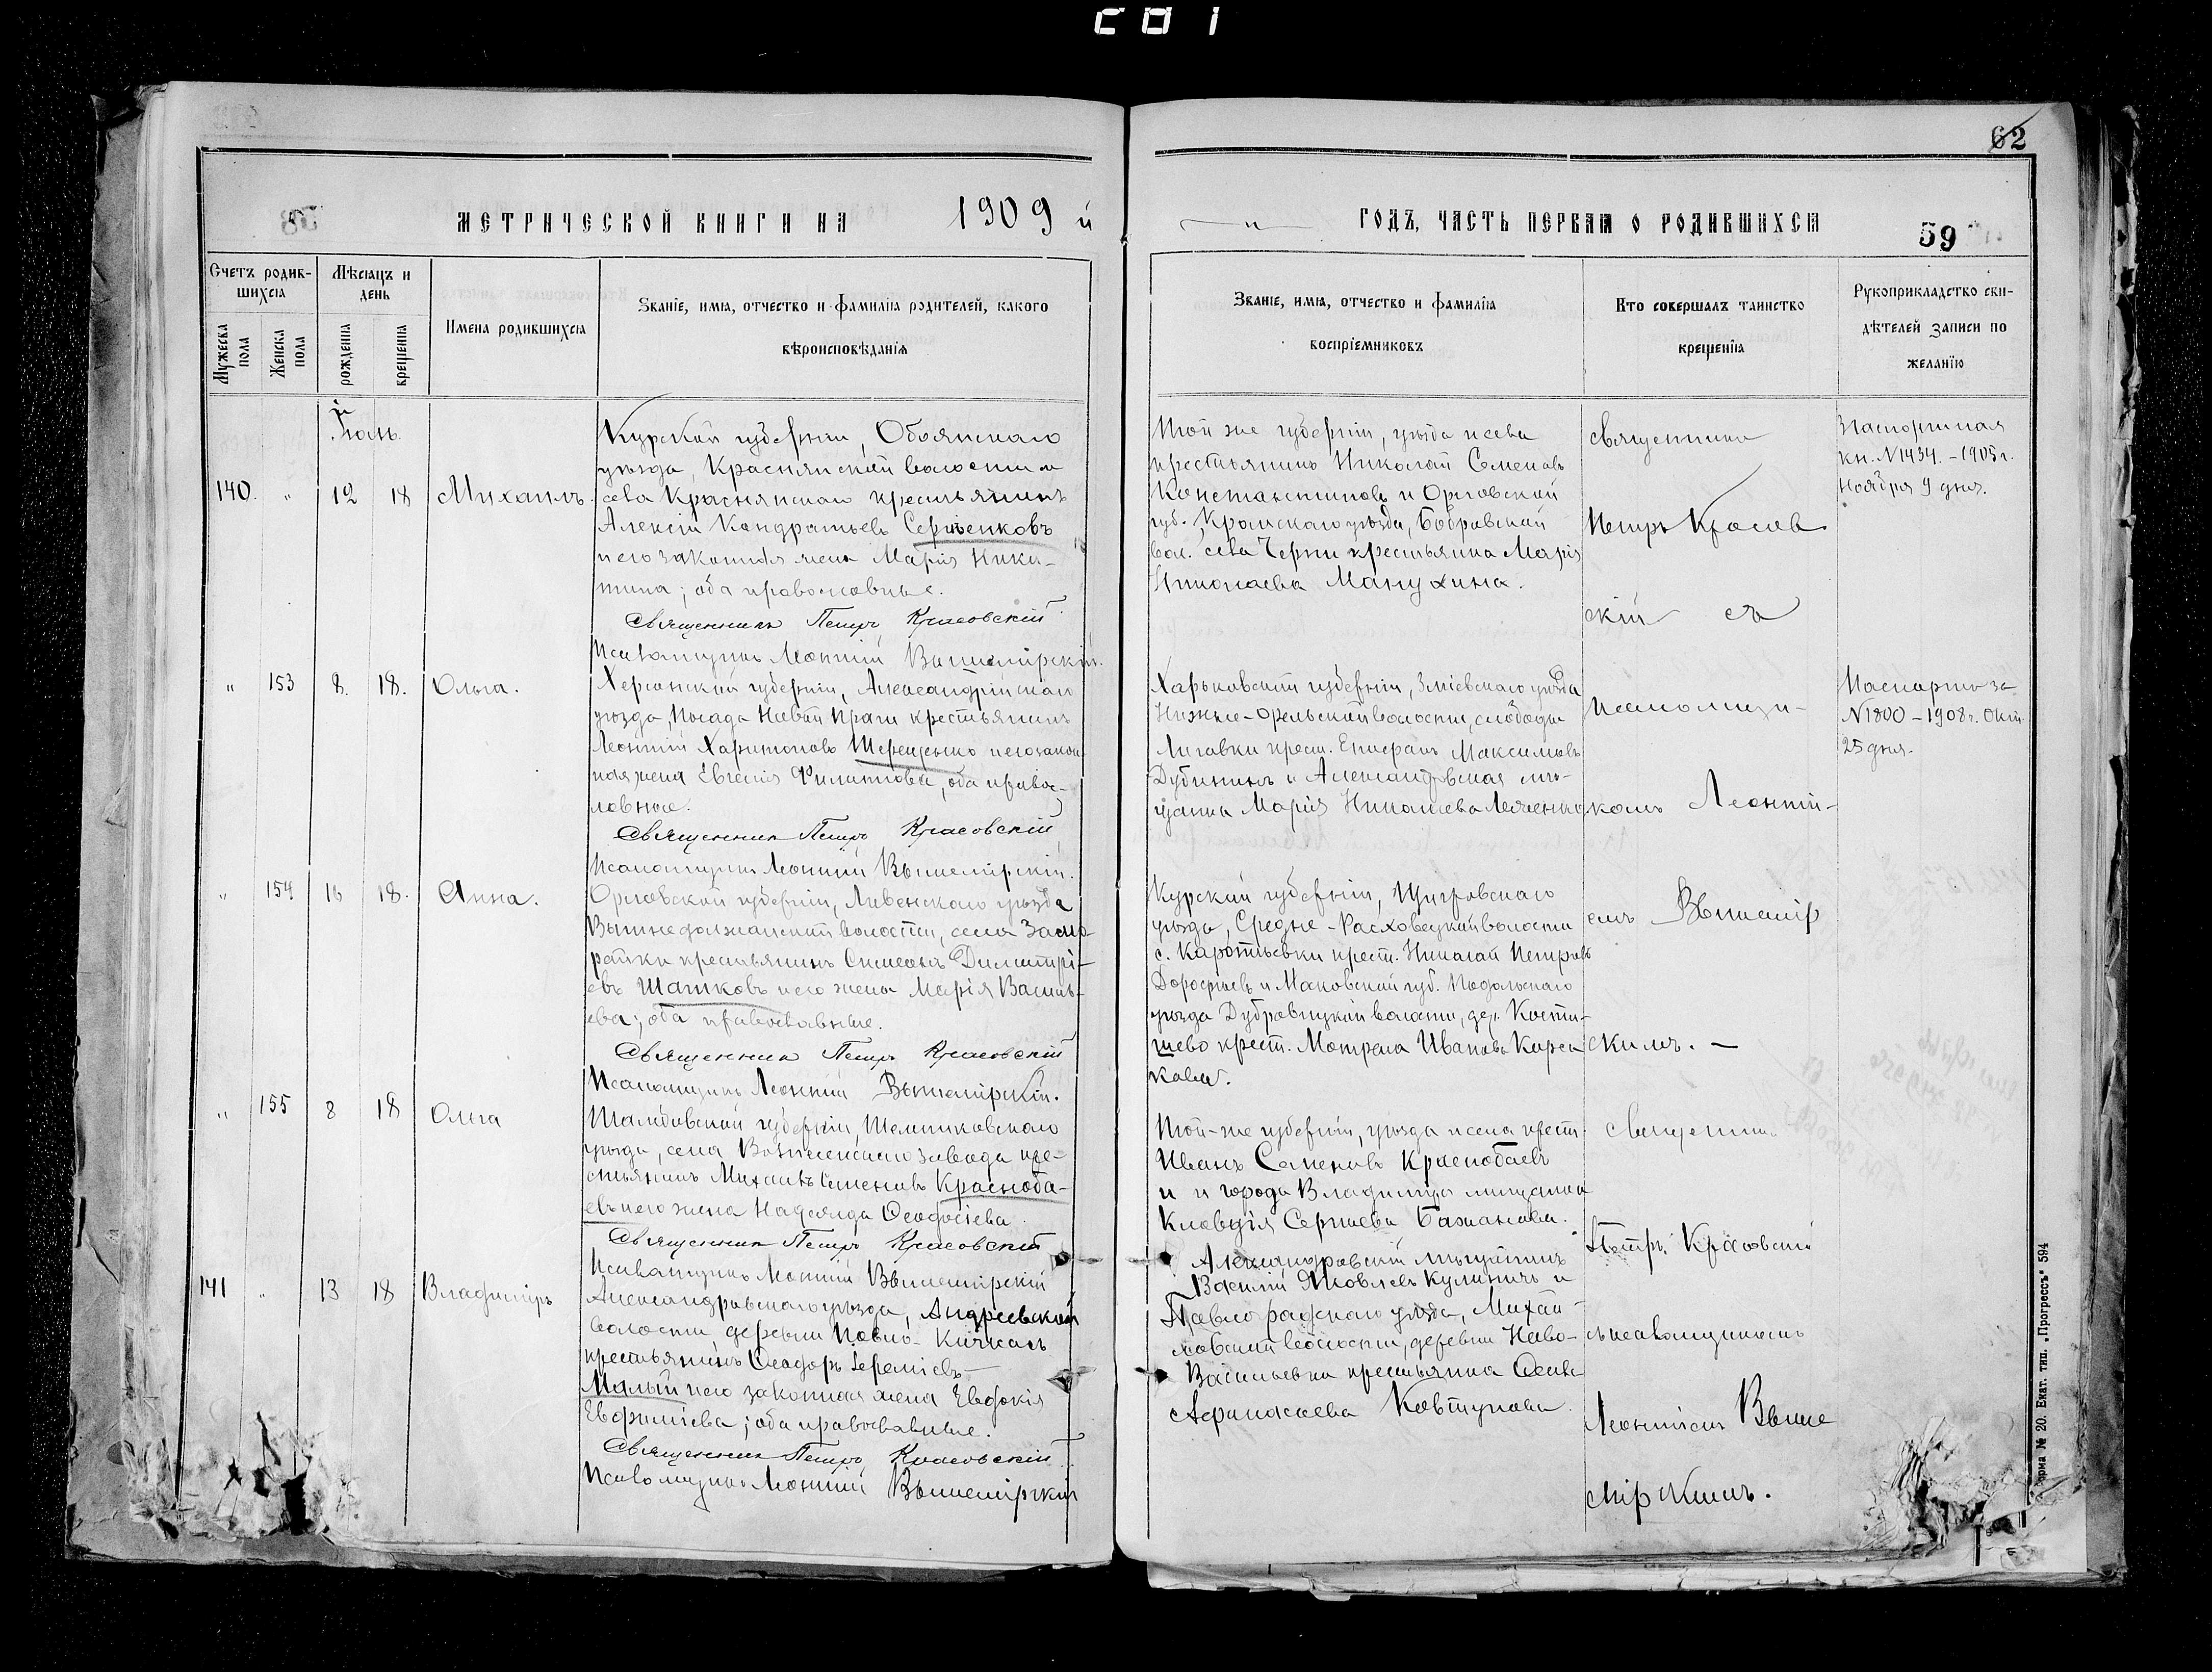 C01
62
МЕТРИЧЕСКОЙ КНИГИ НА 1909 й
ГОДЪ, ЧАСТЬ ПЕРВАЯ О РОДИВШИХСЯ
59
Счетъ родившихся
Мужеска пола
Женска пола
Мѣсяцъ и день
рожденія
крещенія
Имена родившихся
Званіе, имя, отчество и фамилія родителей, какого
вѣроисповѣданія
Званіе, имя, отчество и фамилія
воспріемниковъ
Кто совершалъ таинство
крещенія
Рукоприкладство сви-
дѣтелей записи по
желанію
Іюль.
140. " 12 18 Михаилъ.
Курской губерніи, Обоянскаго
уѣзда, Краснянской волости и
села Краснянскаго крестьянинъ
Алексій Кондратьевъ Сергѣенковъ
и его законная жена Марія Ники-
тина; оба православные.
Священникъ Петръ Красовскій
Псаломщикъ Леонтій Вышемірскій.
Той же губерніи, уѣзда и села
крестьянинъ Николай Семеновъ
Константиновъ и Орловской
губ. Кромскаго уѣзда, Бобровской
вол. села Черни крестьянка Марія
Николаева Манухина.
Паспортная
кн. N1434. - 1905 г.
Ноября 9 дня.
" 153 8. 18. Ольга.
Херсонской губерніи, Александрійскаго
уѣзда, посада Новой Праги крестьянинъ
Леонтій Харитоновъ Шерещенко и его закон-
ная жена Евгенія Филиппова, оба правос-
лавные.
Священникъ Петръ Красовскій
Псаломщикъ Леонтій Вышемірскій.
Харьковской губерніи, Зміевскаго уѣзда
Нижне-Орельской волости, слободы
Лиговки крест. Епифанъ Максимовъ
Дубининъ и Александровская мѣ-
щанка Марія Николаева
Паспортъ за
N1800 - 1908 г. Окт.
25 дня.
" 154 16 18. Анна.
Орловской губерніи, Ливенскаго уѣзда
Вышнедолжанской волости, села
крестьянинъ Симеонъ Димитрі-
евъ Шатковъ и его жена Марія Василь-
ева; оба православные.
Священникъ Петръ Красовскій
Псаломщикъ Леонтій Вышемірскій.
Курской губерніи, Щигровскаго
уѣзда, Средне-Расховецкой волости
с. Каротьевки крест. Николай Петровъ
Дорофѣевъ и Московской губ. Подольскаго
уѣзда Дубровицкой волости, дер. Кости-
шево крест. Матрена Иванова Карса
кова.
" 155 8 18 Ольга
Тамбовской губерніи, Темниковскаго
уѣзда, села Вознесенскаго завода кре-
стьянинъ Михаилъ Семеновъ Красноба-
евъ и его жена Надежда Ѳеодосіева
Священникъ Петръ Красовскій
Псаломщикъ Леонтій Вышемірскій
Той-же губерніи, уѣзда и села крест.
Иванъ Семеновъ Краснобаевъ
и и города Владиміра мѣщанка
Клавдія Сергѣева Бажанова.
141 " 13 18 Владиміръ
Александровскаго уѣзда, Андреевской
волости деревни Павло-Кичкасъ
крестьянинъ Ѳеодоръ Іереміевъ
Малый и его законная жена Евдокія
Евфиміева; оба православные.
Священникъ Петръ Красовскій
Псаломщикъ Леонтій Вышемірскій
Александровскій мѣщанинъ
Василій Яковлевъ Кулиничъ и
Павлоградскаго уѣзда, Михай-
ловской волости, деревни Ново-
Васильевки крестьянка
Афанасіева Ковтунова.
священникъ
Петръ Красов
скій съ
псаломщи-
комъ Леонтій-
емъ Вышемір
скимъ. —
Священникъ
Петръ Красовскій
съ псаломщикомъ
Леонтіемъ Выше
мірскимъ.
Форма № 20. Екат. тип. „Прогрессъ" 594